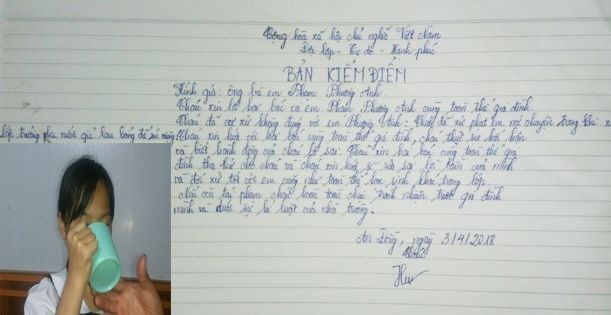 Cộng hòa xã hội chủ nghĩa Việt Nam
Độc lập - Tự do - Hạnh phúc
BẢN KIỂM ĐIỂM
Kính gửi: ông bà em Phạm Phương Anh
Cháu xin lỗi hai bác và em Phạm Phương Anh cùng toàn thể gia đình.
Cháu đã cư xử không đúng với em Phương Anh: Cháu đã xử phạt em nói chuyện trong khi
lớp trưởng pha nước giẻ lau bảng để súc miệng
Cháu xin hứa với hai bác cùng toàn thể gia đình, cháu thực sự hối hận
và biết hành động của cháu là sai. Cháu xin hai bác cùng toàn thể gia
đình tha thứ cho cháu và cháu xin hứa sẽ sửa sai lỗi lầm của mình
và đối xử tốt với em cũng như toàn thể học sinh khác trong lớp.
Nếu còn tái phạm cháu hoàn toàn chịu trách nhiệm trước gia đình
mình và dưới sự kỉ luật của nhà trường.
An Đồng, ngày 3/4/2018